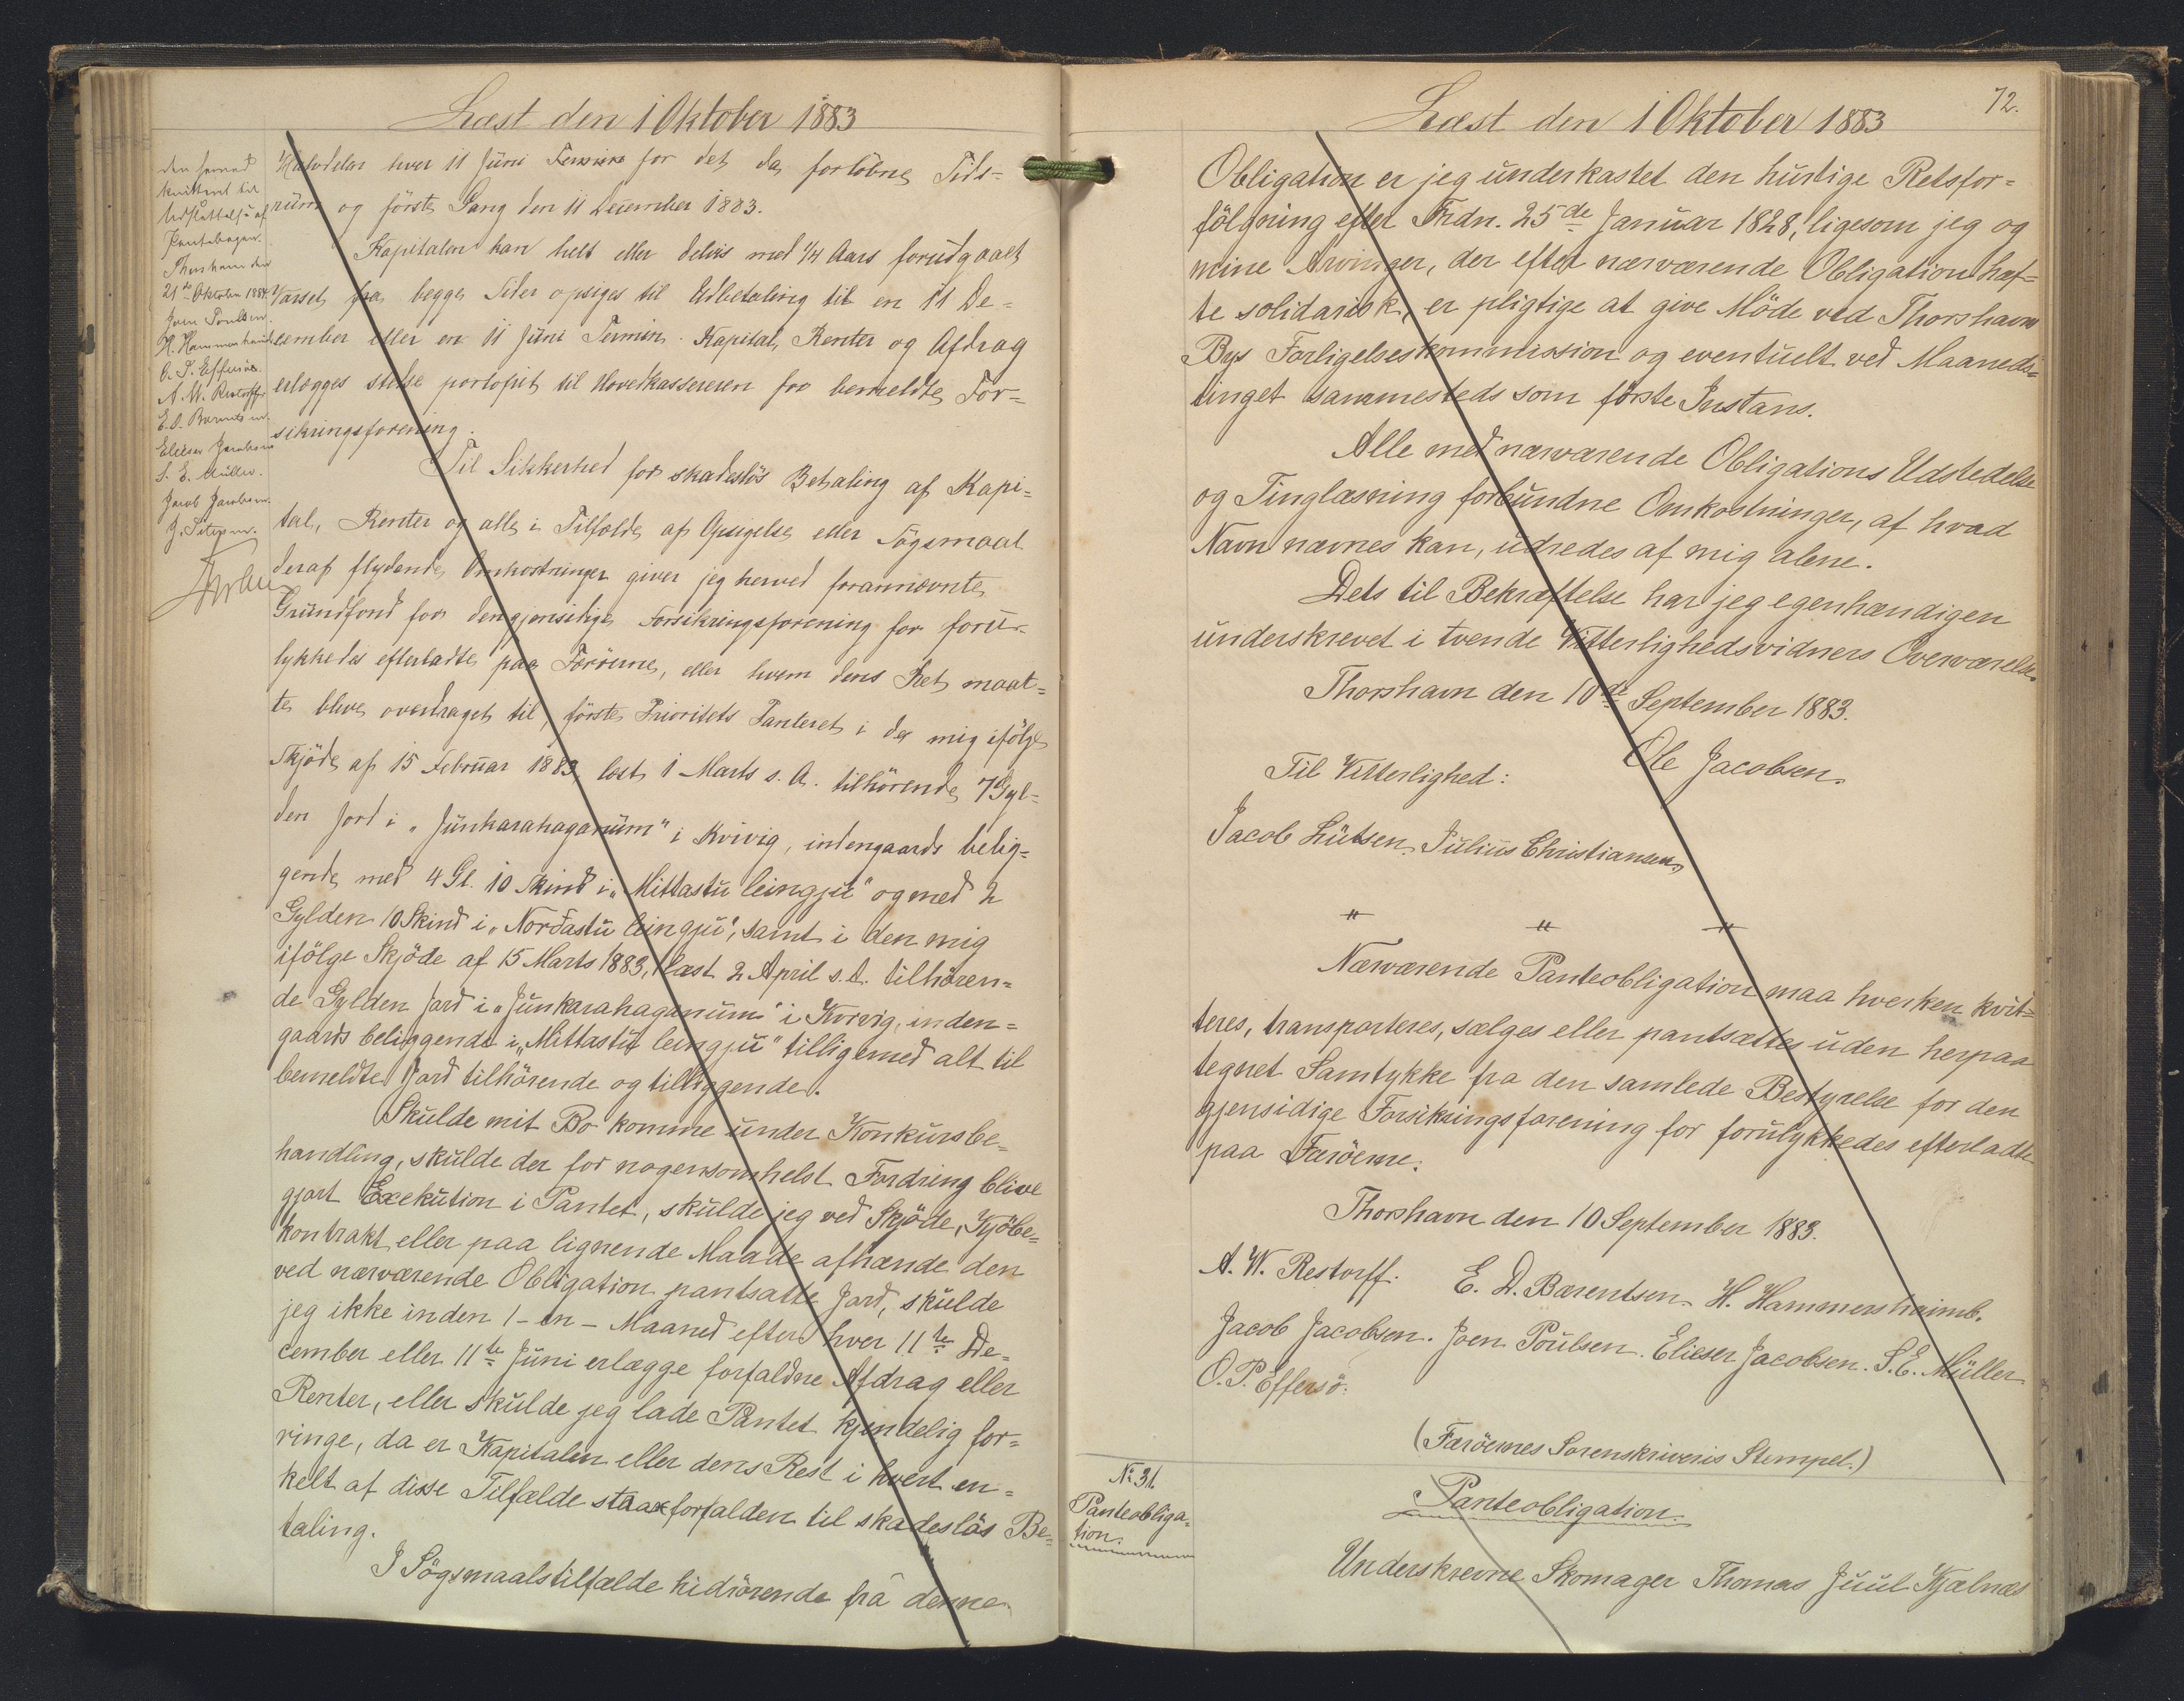 Læst den 1 Oktober 1883
den herved
kvitteret til
Udslettelse af
Pantebogen.
Thorshavn den
21de Oktober 1884
Joen Poulsen.
H. Hammershaimb
O. P. Effersöe.
A. W. Restorff.
E. D. Bærentsen.
Elieser Jacobsen
S. E. Müller.
Jacob Jacobsen.
J.
Halvdelen hver 11 Juni Termin for det da forlöbne Tids-
rüm og förste Gang den 11 December 1883.
Kapitalen kan helt eller delvis med 1/4 Aars forudgaaet
Varsel fra begge Sider opsiges til Udbetaling til en 11 De-
cember eller en 11 Juni Termin. Kapital, Renter og Afdrag
erlægges stedse portofrit til Hovedkassereren for bemeldte For-
sikringsforening.
Til Sikkerhed for skadeslös Betaling af Kapi-
tal, Renter og alle i Tilfælde af Opsigelse eller Sögsmaal
deraf flydende Omkostninger giver jeg herved forannævnte
Gründfond for den gjensidige Forsikringsforening for foru-
lykkedes efterladte paa Færöerne, eller hvem dens Ret maat-
te blive overdraget til, förste Prioritets Panteret i de mig ifölge
Skjöde af 15 Februar 1883, læst 1 Marts s. A. tilhörende 7 Gyl-
den Jord i "Jünkarahaganüm" i Kvivig, indengaards belig-
gende med 4 Gl. 10 Skind i "Mittastü leingjü" og med 2
Gylden 10 Skind i "Nordastü leingjü", samt i den mig
ifölge Skjöde af 15 Marts 1883, læst 2 April s. A. tilhören-
de Gylden Jord i "Jünkarahaganüm" i Kvivig, inden-
gaards beliggende i "Mittastü leingjü" tilligemed alt til
bemeldte Jord tilhörende og tilliggende.
Skulde mit Bo komme ünder Konkürsbe-
handling, skulde der for nogensomhelst Fordring blive
gjort Execution i Pantet, skülde jeg ved Skjöde, Kjöbe-
kontrakt eller paa lignende Maade afhænde den
ved nærværende Obligation pantsatte Jord, skulde
jeg ikke inden 1 - en - Maaned efter hver 11te De-
cember eller 11te Juni erlægge forfaldne Afdrag eller
Renter, eller skulde jeg lade Pantet kjendelig for-
ringe, da er Kapitalen eller dens Rest i hvert en-
kelt af disse Tilfælde strax forfalden til skadeslös Be-
taling.
I Sögsmaalstilfælde hidrörende fra denne
Læst den 1 Oktober 1883
72.
Obligation er jeg underkastet den hurtige Retsfor-
fölgning efter Frdn. 25de Januar 1828, ligesom jeg og
mine Arvinger, der efter nærværende Obligation hæf-
te solidarisk, er pligtige at give Möde ved Thorshavn
Bys Forligelseskommission og eventuelt ved Maaneds-
tinget sammesteds som förste Instans.
Alle med nærværende Obligations Udstedelse
og Tinglæsning forbundne Omkostninger, af hvad
Navn nævnes kan, udredes af mig alene.
Dets til Bekræftelse har jeg egenhændigen
underskrevet i tvende Vitterlighedsvidners Overværelse.
Thorshavn den 10de September 1883.
Ole Jacobsen.
Til Vitterlighed:
Jacob Lütsen. Julius Christiansen.
" " "
Nærværende Panteobligation maa hverken kvit-
teres, transporteres, sælges eller pantsættes uden herpaa
tegnet Samtykke fra den samlede Bestyrelse for den
gjensidige Forsikringsforening for forulykkedes efterladte
paa Færöerne.
Thorshavn den 10 September 1883.
A. W. Restorff. E. D. Bærentsen. H. Hammershaimb.
Jacob Jacobsen. Joen Poulsen. Elieser Jacobsen. S. E. Müller
O. P. Effersö.
(Færöernes Sorenskriveris Stempel.)
No 31.
Panteobliga-
tion.
Panteobligation.
Underskrevne Skomager Thomas Juul Kjælnæs